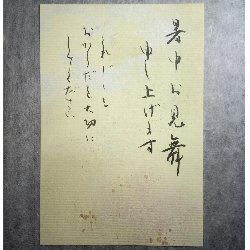 暑中お見舞
申し上げます
くれぐれも
おからだを大切に
してください